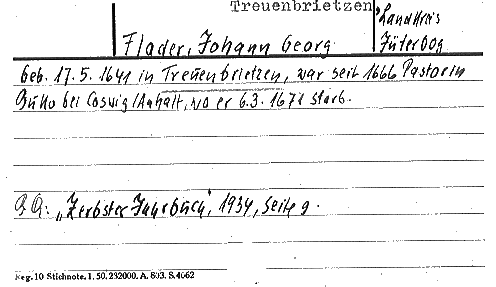 Treuenbrietzen, Landkreis
Flader, Johann Georg Jüterbog
Geb. 17.5.1641 in Treuenbrietzen, war seit 1666 Pastor in
Buko bei Coswig/Anhalt, wo er 6.3.1671 starb.
"Zerbster Jahrbuch", 1934, Seite 9.
Reg. 10 Stichnote. I. 50. 232000. A. 803. S. 4062